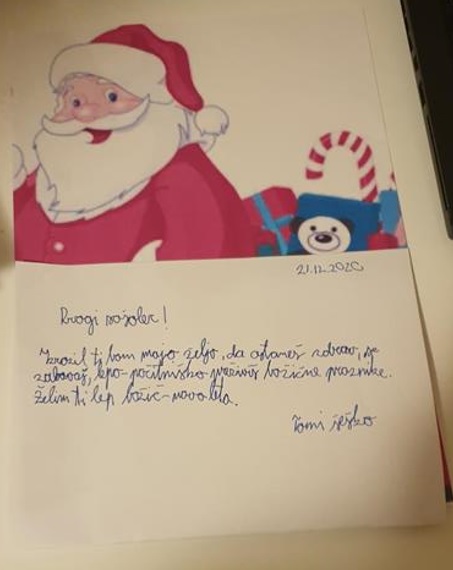 21.12.2020
Dragi sošolec!
Izrazil ti bom mojo željo, da ostaneš zdrav, se
zabavaš, lepo počitniško preživiš božične praznike.
Želim ti lep božič-novo leto.
Tomi